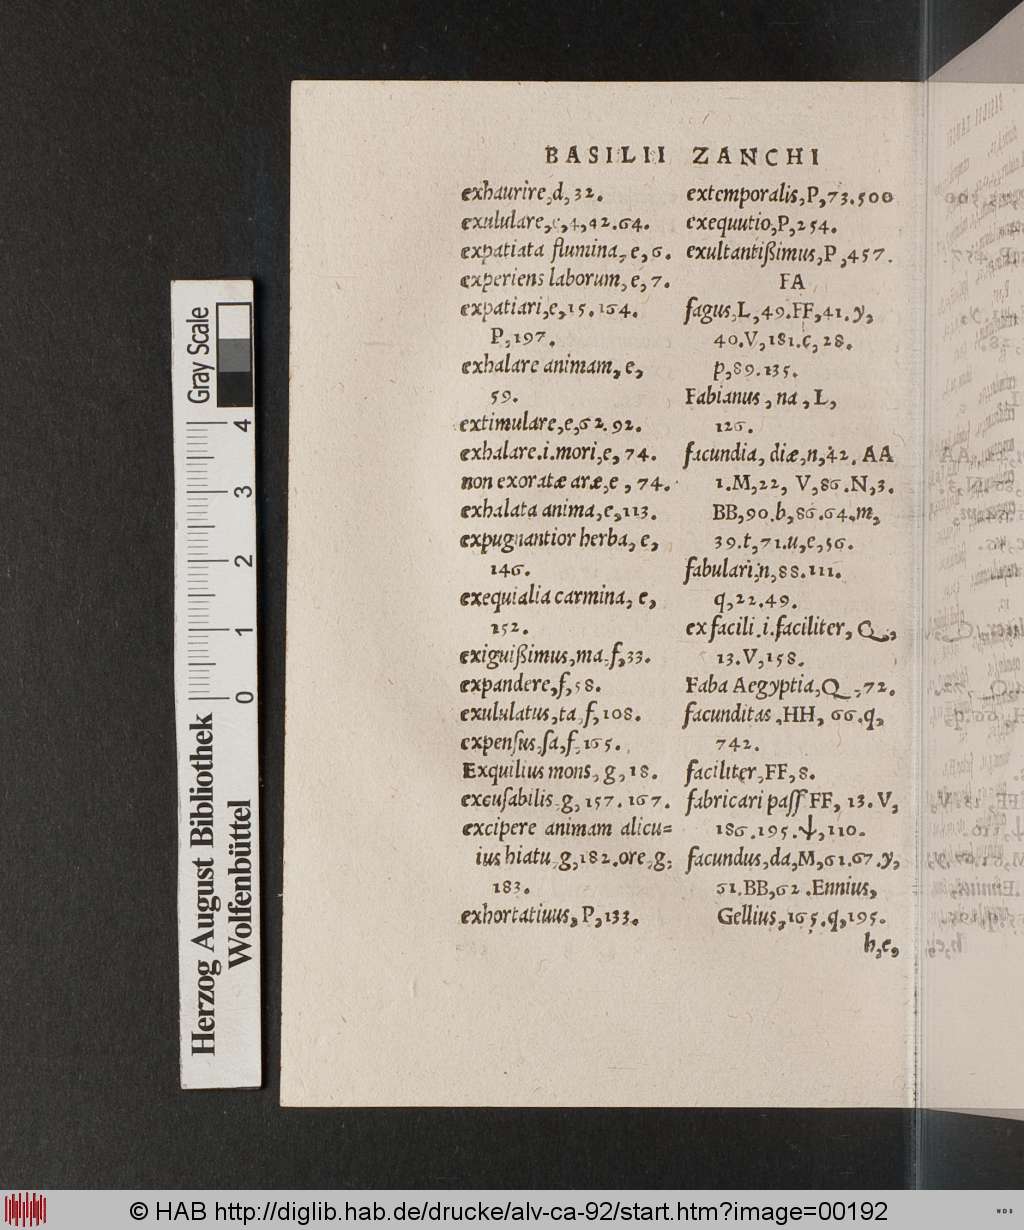 BASILII ZANCHI
exhaurire,d,32.
exululare,e,4,42.64.
expatiata flumina,e,6.
experiens laborum,e,7.
expatiari,e,15.164.
P,197.
exhalare animam,e,
59.
extimulare,e,62.92.
exhalare.i.mori,e,74.
non exoratæ aræ,e,74.
exhalata anima,e,113.
expugnantior herba,e,
146.
exequialia carmina,e,
152.
exiguißimus,ma,f,33.
expandere,f,58.
exululatus,ta,f,108.
expenſus,ſa,f,165.
Exquilius mons,g,18.
excuſabilis,g,157.167.
excipere animam alicu=
ius hiatu,g,182.ore,g,
183.
exhortatiuus,P,133.
extemporalis,P,73.500
exequutio,P,254.
exultantißimus,P,457.
FA
fagus,L,49.FF,41.y,
40.V,181.c,28.
p,89.135.
Fabianus,na,L,
126.
facundia,diæ,n,42.AA
1.M,22,V,86.N,3.
BB,90.b,86.64.m,
39.t,71.u,e,56.
fabulari,n,88.111.
q,22.49.
ex facili.i.faciliter,Q,
13.V,158.
Faba Aegyptia,Q,72.
facunditas,HH,66.q,
742.
faciliter,FF,8.
fabricari paſſ FF,13.V,
186.195.ψ,110.
facundus,da,M,61.67.y,
51.BB,62.Ennius,
Gellius,165.q,195.
h,e,
Gray Scale
4
3
2
1
0
Herzog August Bibliothek
Wolfenbüttel
© HAB http://diglib.hab.de/drucke/alv-ca-92/start.htm?image=00192
WDB